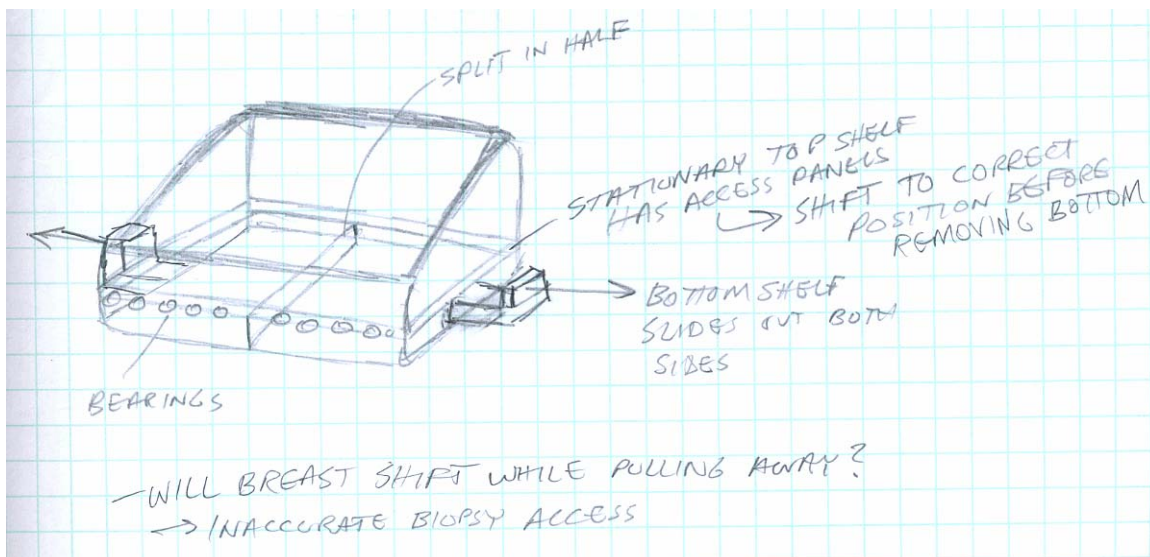 SPLIT IN HALF
STATIONARY TOP SHELF
HAS ACCESS PANELS
↳ SHIFT TO CORRECT
POSITION BEFORE
REMOVING BOTTOM
BOTTOM SHELF
SLIDES OUT BOTH
SIDES
BEARINGS
- WILL BREAST SHIFT WHILE PULLING AWAY?
→ INACCURATE BIOPSY ACCESS